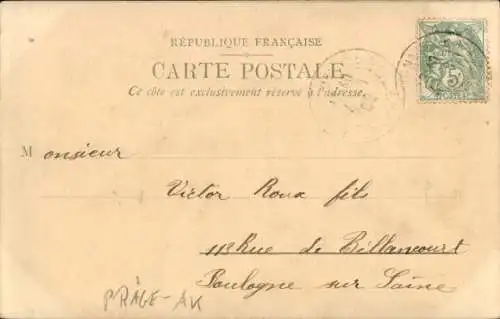 RÉPUBLIQUE FRANÇAISE
CARTE POSTALE
Ce côté est exclusivement réservé à l'adresse.
5
Monsieur
Victor Roux fils
118 Rue de Billancourt
Boulogne sur Seine
PRÄGE-AK